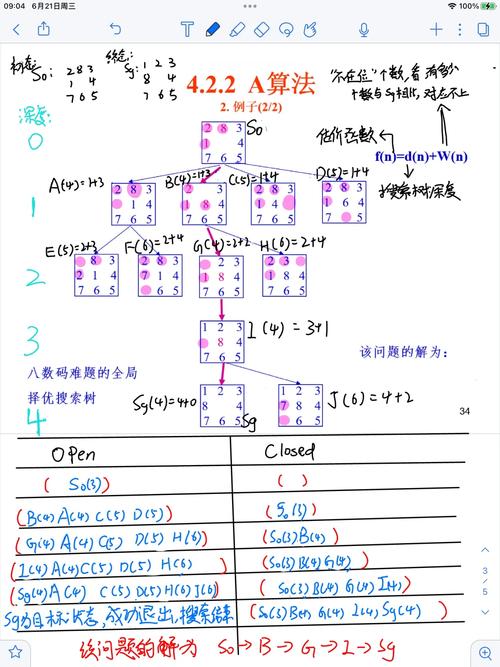 09:04 6月21日周三
100%
初态: 终态:
S₀: 2 8 3
1 4
7 6 5
Sg: 1 2 3
8 4
7 6 5
4.2.2 A算法
2. 例子(2/2)
"不在位"个数, 看有多少
个数与Sg相比, 对应不上
估价函数
f(n)=d(n)+W(n)
搜索树深度
深度:
0
2 8 3
1 4
7 6 5
S₀
1
A(4)=1+3
B(4)=1+3
C(5)=1+4
D(5)=1+4
2 8 3
1 4
7 6 5
2 3
1 8 4
7 6 5
2 8 3
1 4
7 6 5
2 8 3
1 6 4
7 5
2
E(5)=2+3
F(6)=2+4
G(4)=2+2
H(6)=2+4
8 3
2 1 4
7 6 5
2 8 3
7 1 4
6 5
2 3
1 8 4
7 6 5
2 3
1 8 4
7 6 5
3
1 2 3
8 4
7 6 5
I(4)=3+1
该问题的解为:
八数码难题的全局
择优搜索树
4
Sg(4)=4+0
1 2 3
8 4
7 6 5
Sg
1 2 3
7 8 4
6 5
J(6)=4+2
34
Open Closed
( S₀(3) ) ( )
(B(4) A(4) C(5) D(5)) (S₀(3))
(G(4) A(4) C(5) D(5) H(6)) (S₀(3) B(4))
(I(4) A(4) C(5) D(5) H(6)) (S₀(3) B(4) G(4))
(Sg(4) A(4) C(5) D(5) H(6) J(6)) (S₀(3) B(4) G(4) I(4))
Sg为目标状态, 成功退出, 搜索结束 (S₀(3) B(4) G(4) I(4) Sg(4))
该问题的解为 S₀→B→G→I→Sg
3
5